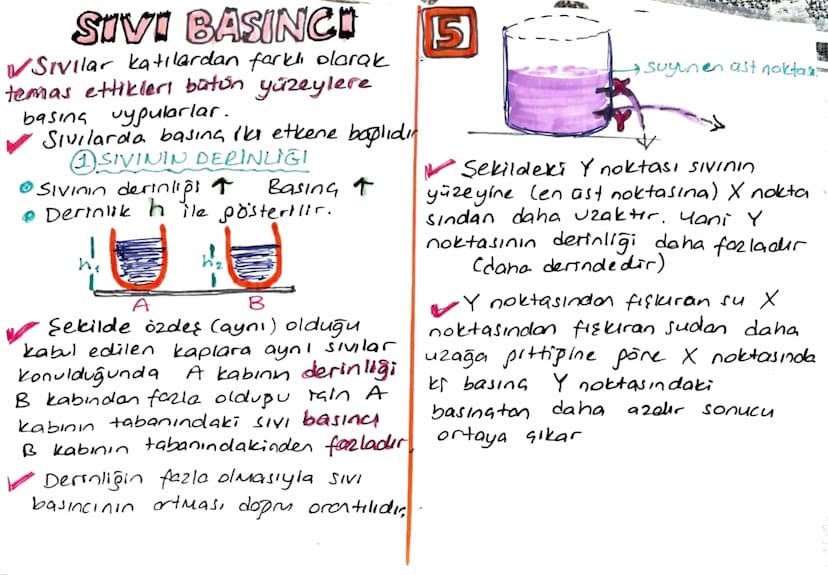 SIVI BASINCI
✓ Sıvılar katılardan farklı olarak
temas ettikleri bütün yüzeylere
basınç uygularlar.
✓ Sıvılarda basınç iki etkene bağlıdır
① SIVININ DERİNLİĞİ
Sıvının derinliği ↑ Basınç ↑
Derinlik h ile gösterilir.
h₁ h₂
A B
✓ Şekilde özdeş (aynı) olduğu
kabul edilen kaplara aynı sıvılar
konulduğunda A kabının derinliği
B kabından fazla olduğu için A
kabının tabanındaki sıvı basıncı
B kabının tabanındakinden fazladır.
✓ Derinliğin fazla olmasıyla sıvı
basıncının artması doğru orantılıdır.
5
suyun en üst noktası
X
Y
✓ Şekildeki Y noktası sıvının
yüzeyine (en üst noktasına) X nokta
sından daha uzaktır. Yani Y
noktasının derinliği daha fazladır
(daha derindedir)
✓ Y noktasından fışkıran su X
noktasından fışkıran sudan daha
uzağa gittiğine göre X noktasında
ki basınç Y noktasındaki
basınçtan daha azdır sonucu
ortaya çıkar